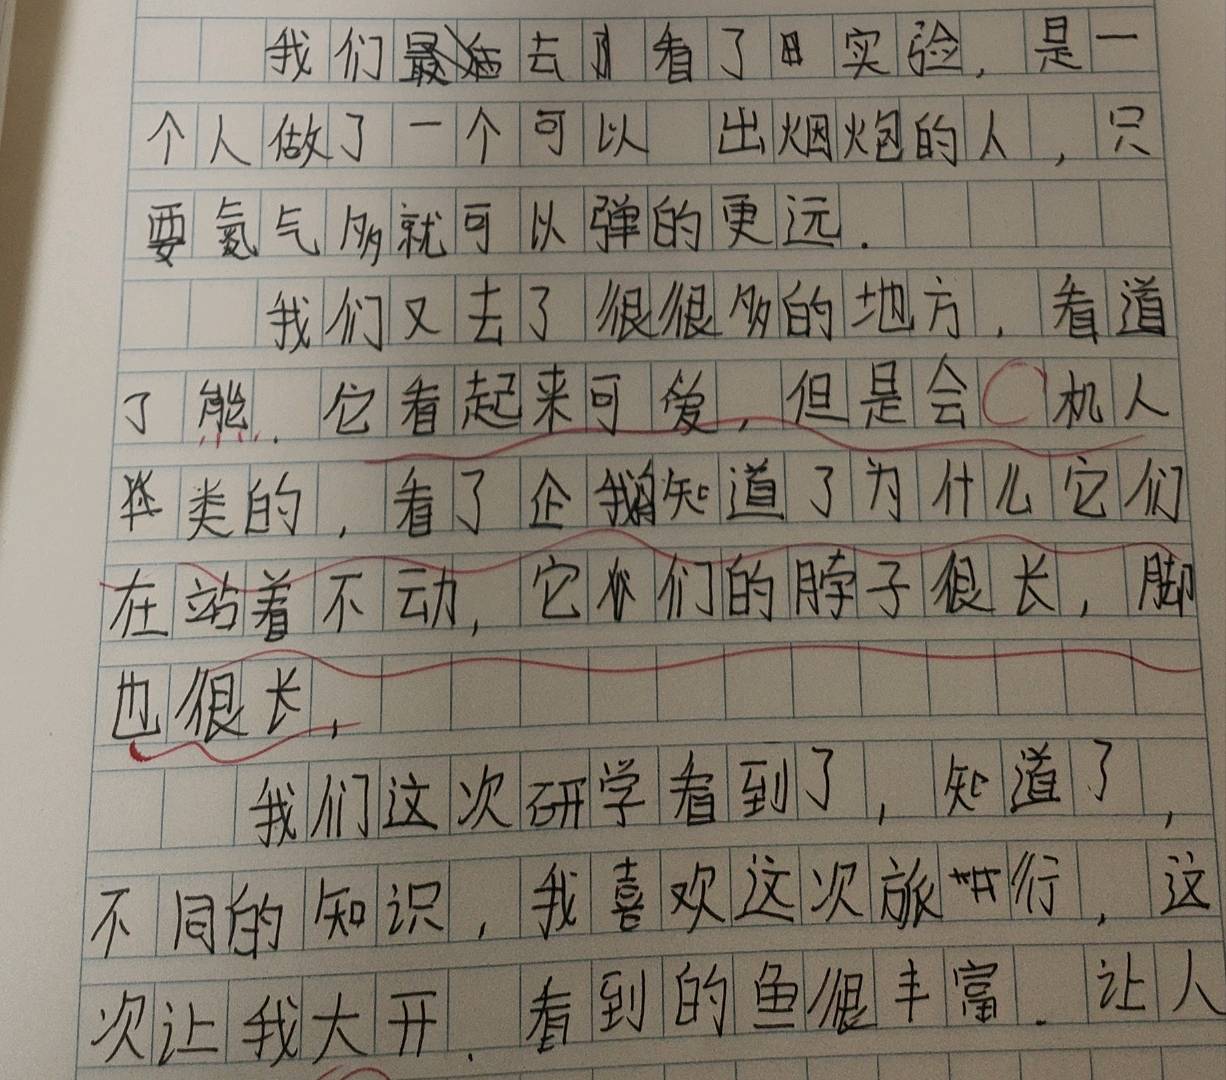 我们去看了实验，是一
个人做了一个可以 出烟炮的人，只
要氮气多就可以弹的更远.
我们又去了很很多的地方，看道
了能.它看起来可爱，但是会 机人
类的，看了企我知道了为什么它们
在站着不动，它们的脖子很长，脚
也很长，
我们这次研学看到了，知道了，
不同的知识，我喜欢这次旅行，这
次让我大开.看到的鱼很丰富.让人